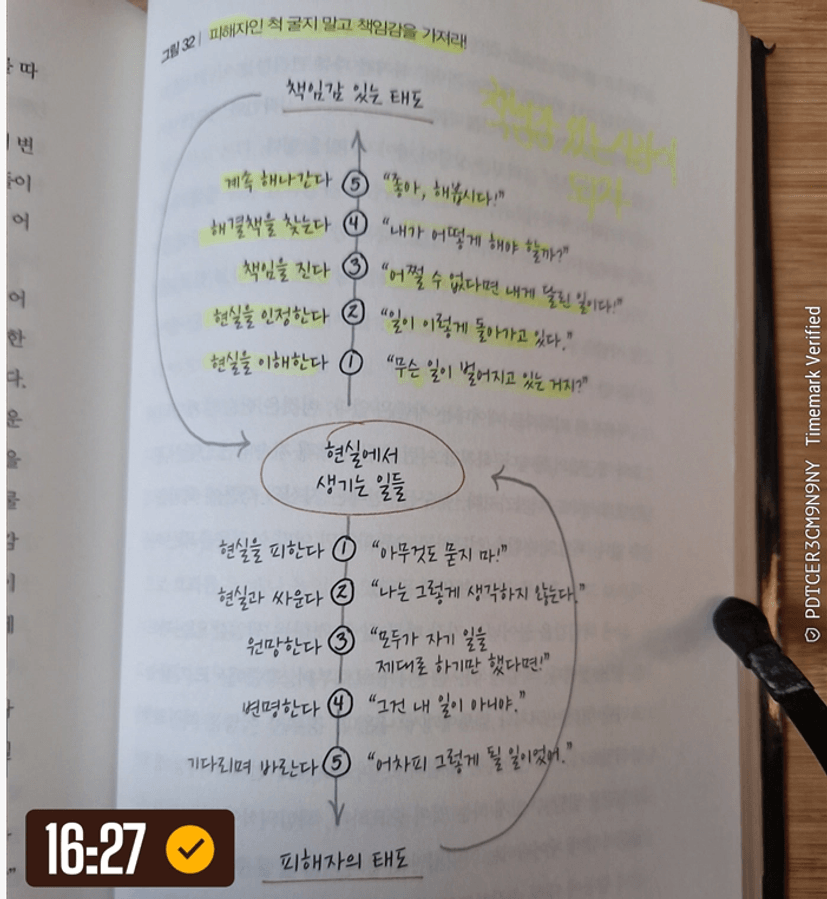 그림 32 | 피해자인 척 굴지 말고 책임감을 가져라!
책임감 있는 태도
책임감 있는 사람이
되자
계속 해나간다 ⑤ “좋아, 해봅시다!”
해결책을 찾는다 ④ “내가 어떻게 해야 할까?”
책임을 진다 ③ “어쩔 수 없다면 내게 달린 일이다!”
현실을 인정한다 ② “일이 이렇게 돌아가고 있다.”
현실을 이해한다 ① “무슨 일이 벌어지고 있는 거지?”
현실에서
생기는 일들
현실을 피한다 ① “아무것도 묻지 마!”
현실과 싸운다 ② “나는 그렇게 생각하지 않는다.”
원망한다 ③ “모두가 자기 일을
제대로 하기만 했다면!”
변명한다 ④ “그건 내 일이 아니야.”
기다리며 바란다 ⑤ “어차피 그렇게 될 일이었어.”
피해자의 태도
따
변
들이
어
어
한
다.
운
을
16:27
PDTCER3CM9N9NY Timemark Verified